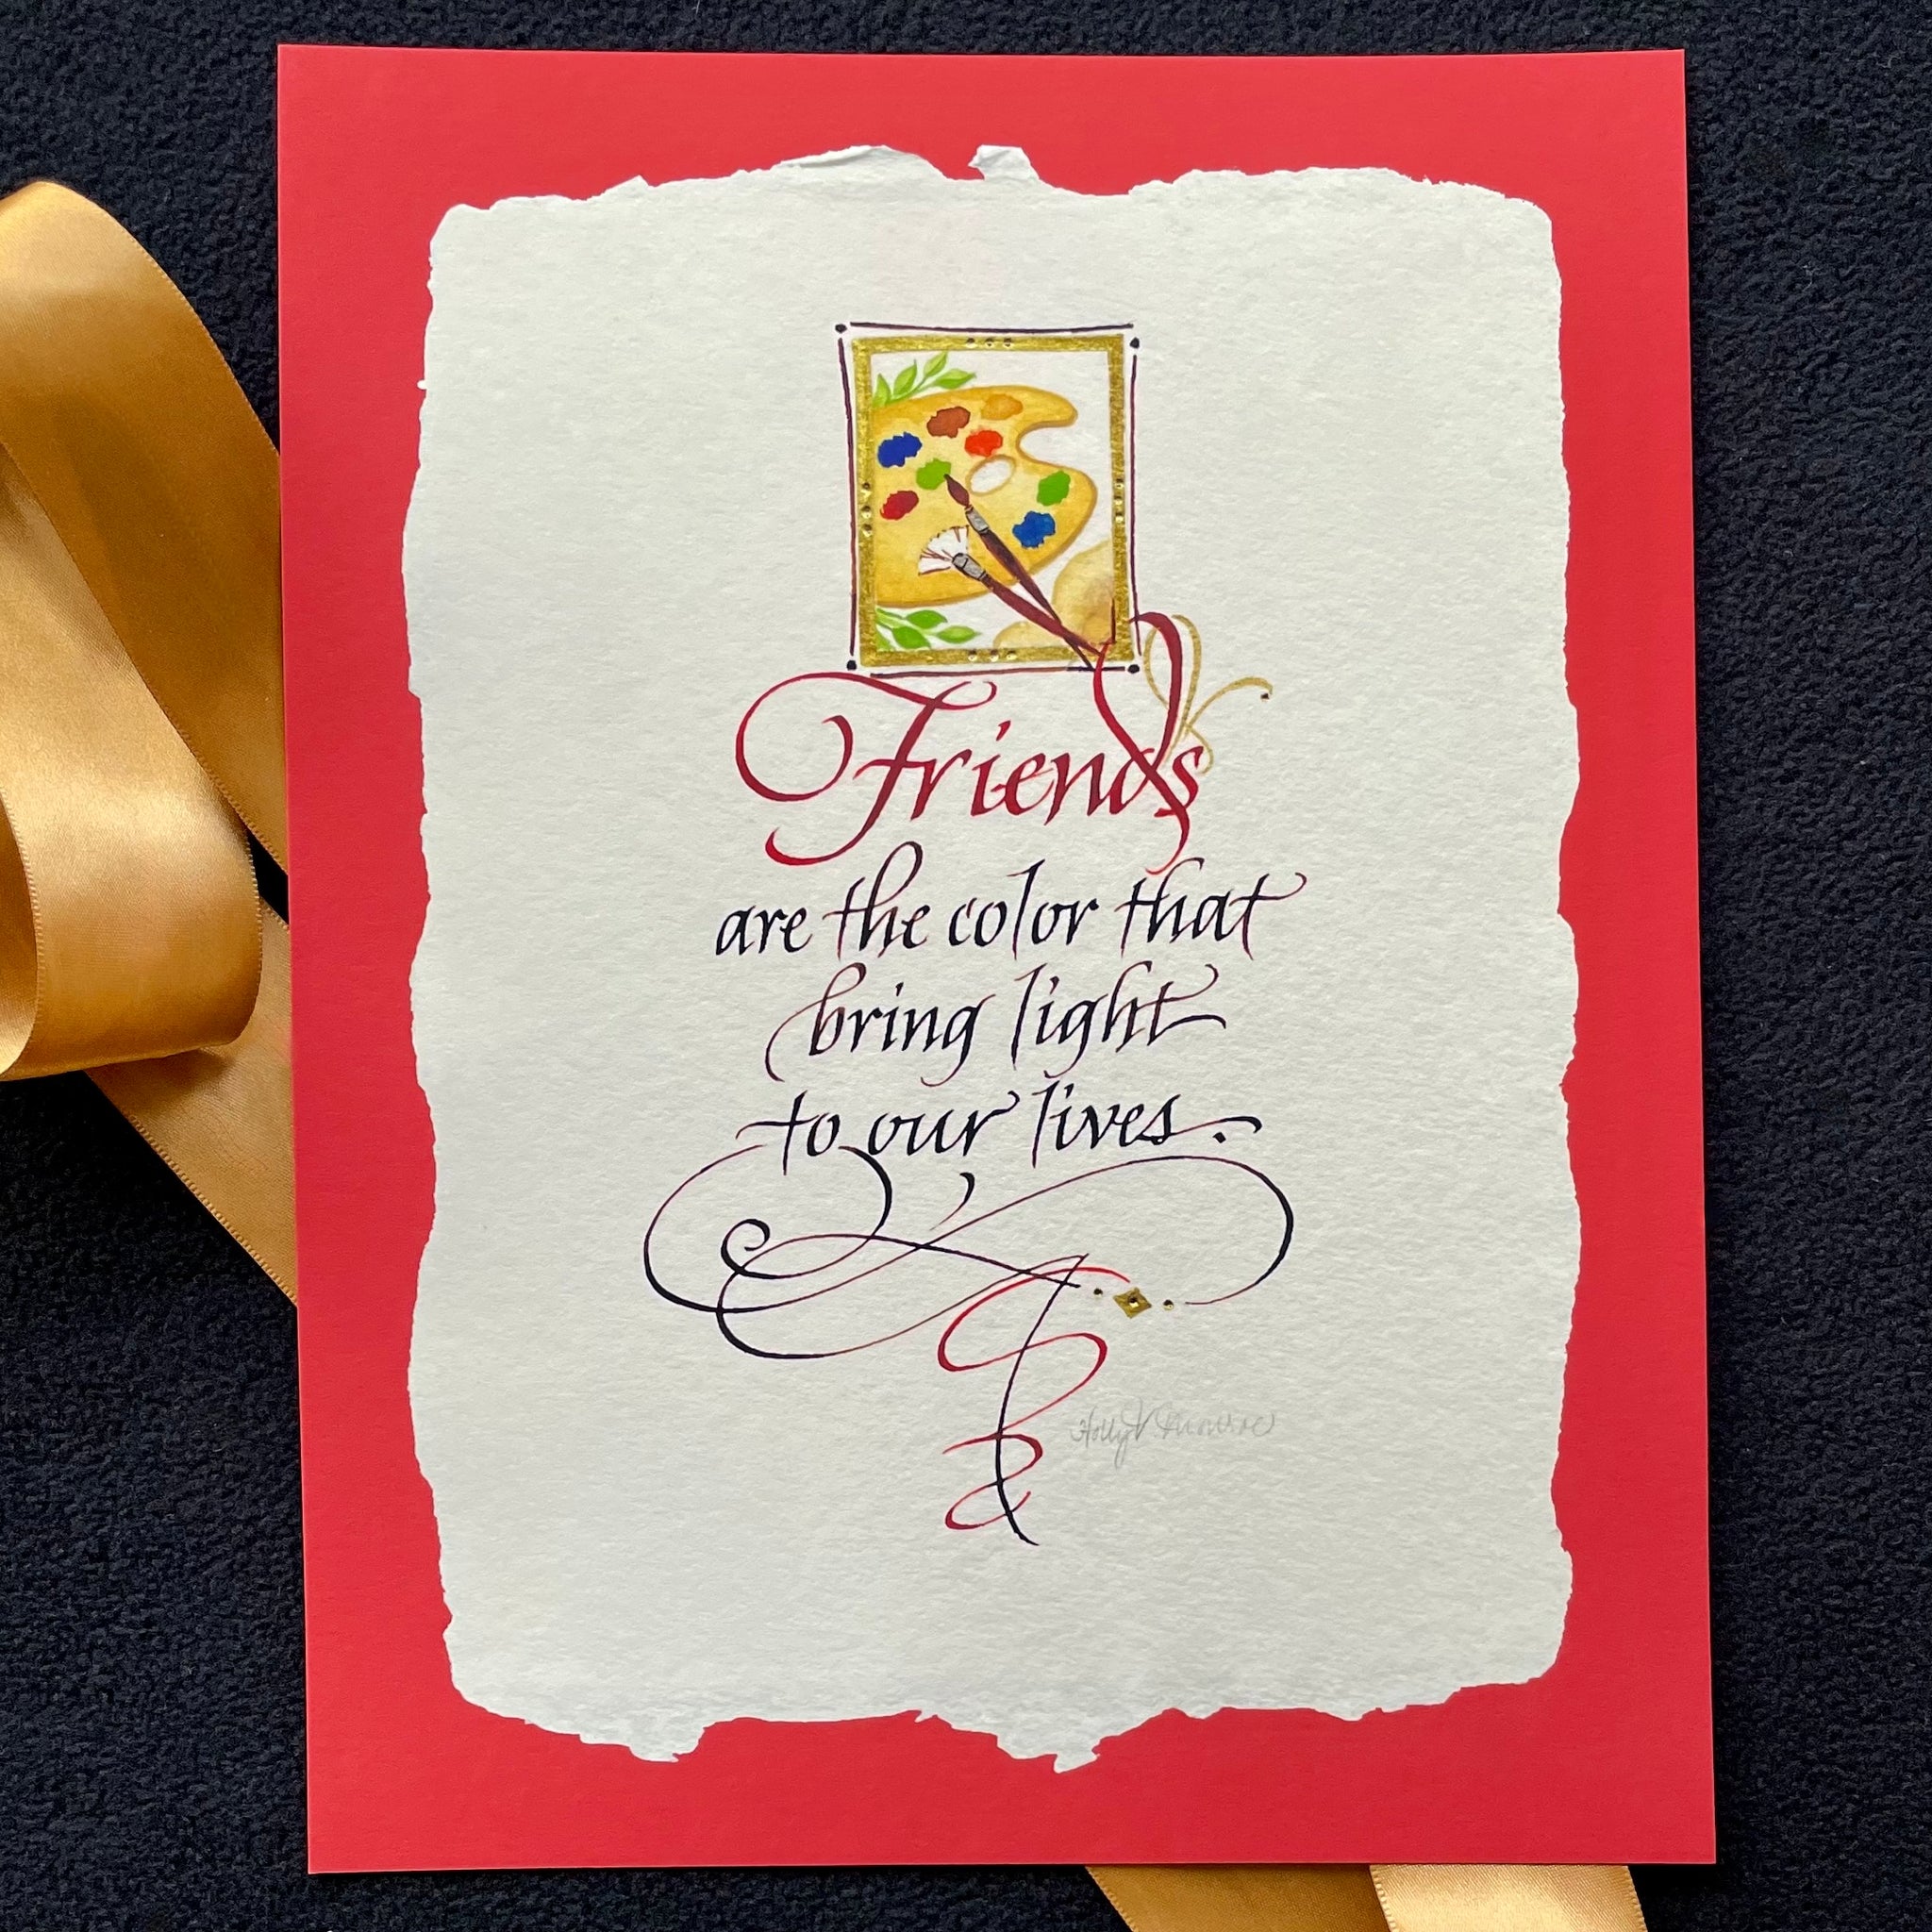 Friends
are the color that
bring light
to our lives.
Holly V. Monroe